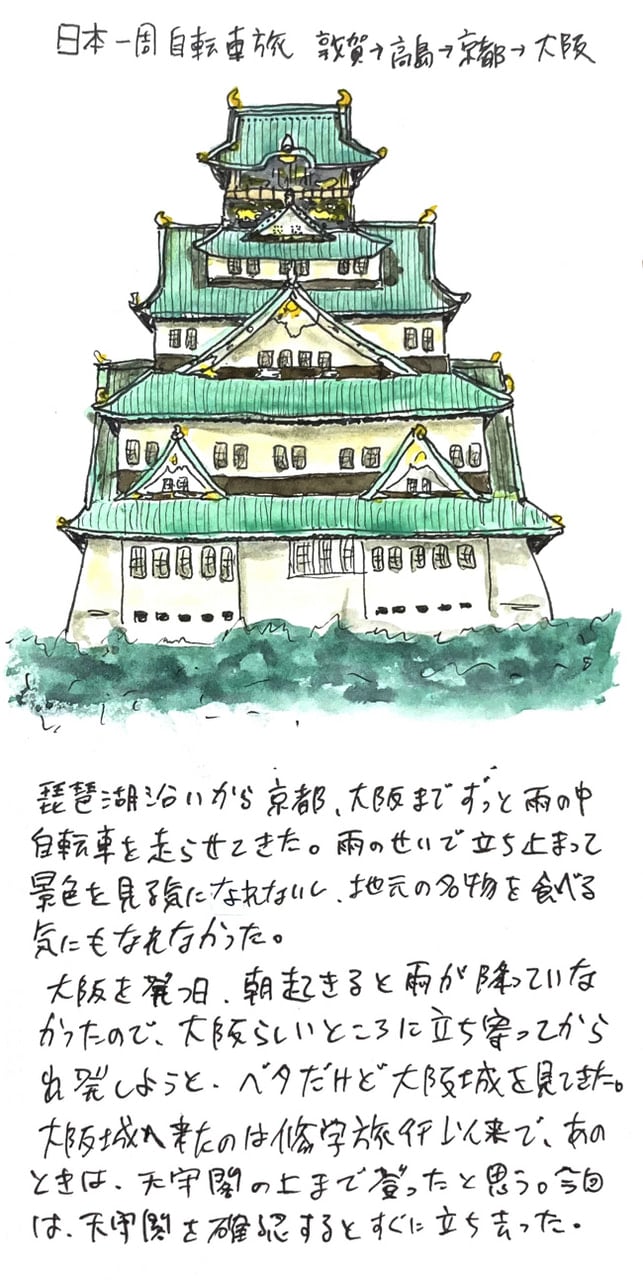 日本一周自転車旅 敦賀→高島→京都→大阪
琵琶湖沿いから京都、大阪までずっと雨の中
自転車を走らせてきた。雨のせいで立ち止まって
景色を見る気になれないし、地元の名物を食べる
気にもなれなかった。
大阪を発つ日、朝起きると雨が降っていな
かったので、大阪らしいところに立ち寄ってから
出発しようと、ベタだけど大阪城を見てきた。
大阪城へ来たのは修学旅行以来で、あの
ときは、天守閣の上まで登ったと思う。今回
は、天守閣を確認するとすぐに立ち去った。